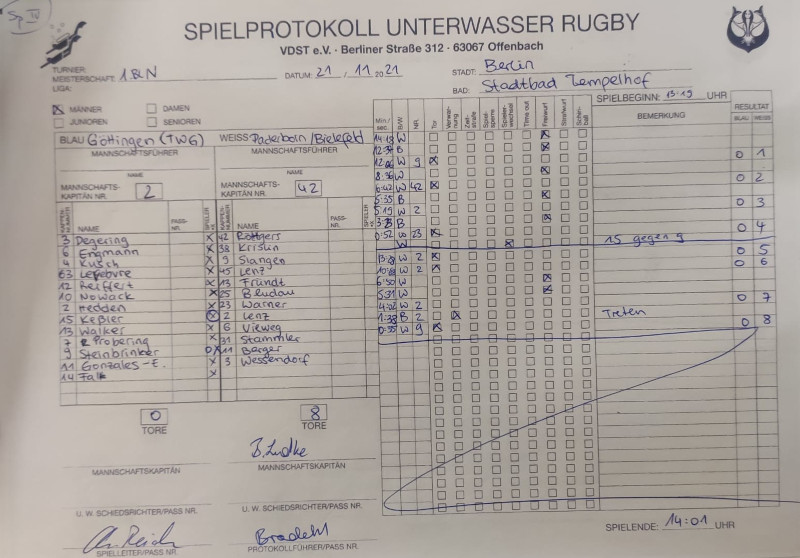 Sp IV
SPIELPROTOKOLL UNTERWASSER RUGBY
VDST e.V. · Berliner Straße 312 · 63067 Offenbach
TURNIER:
MEISTERSCHAFT: 1.BLN
LIGA:
DATUM: 21 / 11 2021
STADT: Berlin
BAD: Stadtbad Tempelhof
SPIELBEGINN: 13:19 UHR
MÄNNER DAMEN
JUNIOREN SENIOREN
BLAU Göttingen (TWG) WEISS Paderborn/Bielefeld
MANNSCHAFTSFÜHRER MANNSCHAFTSFÜHRER
NAME NAME
MANNSCHAFTS-KAPITÄN NR. 2 MANNSCHAFTS-KAPITÄN NR. 42
KAPPEN-NUMMER NAME PASS-NR. SPIELER KAPPEN-NUMMER NAME PASS-NR. SPIELER
3 Degering x 42 Röttgers
6 Engmann x 38 Krislin
4 Kusch x 9 Slangen
63 Lefebvre x 45 Lenz
12 Reiffert x 13 Fründt
10 Nowack x 25 Bludau
2 Hedden x 23 Warner
15 Keßler 2 Lenz
13 Walker x 6 Vieweg
7 Probering x 31 Stammler
9 Steinbrinker 11 Berger
11 Gonzales-E. x 3 Wessendorf
14 Falk x
0 8
TORE TORE
B. Ludke
MANNSCHAFTSKAPITÄN MANNSCHAFTSKAPITÄN
U. W. SCHIEDSRICHTER/PASS NR. U. W. SCHIEDSRICHTER/PASS NR.
SPIELLEITER/PASS NR. PROTOKOLLFÜHRER/PASS NR.
Min./sec. B/W NR. Tor Verwarnung Zeitstrafe Spielsperre Spielerwechsel Time out Freiwurf Strafwurf BEMERKUNG RESULTAT
BLAU WEISS
14:18 W
12:34 B
12:06 W 9 0 1
8:36 W
6:42 W 42 0 2
5:35 B
5:19 W 2 0 3
3:23 B
0:52 W 23 0 4
W 15 gegen 9
13:28 W 2 0 5
10:28 W 2 0 6
6:50 W
5:31 W
4:02 W 2 0 7
1:38 B 2 Treten
0:35 W 9 0 8
SPIELENDE: 14:01 UHR